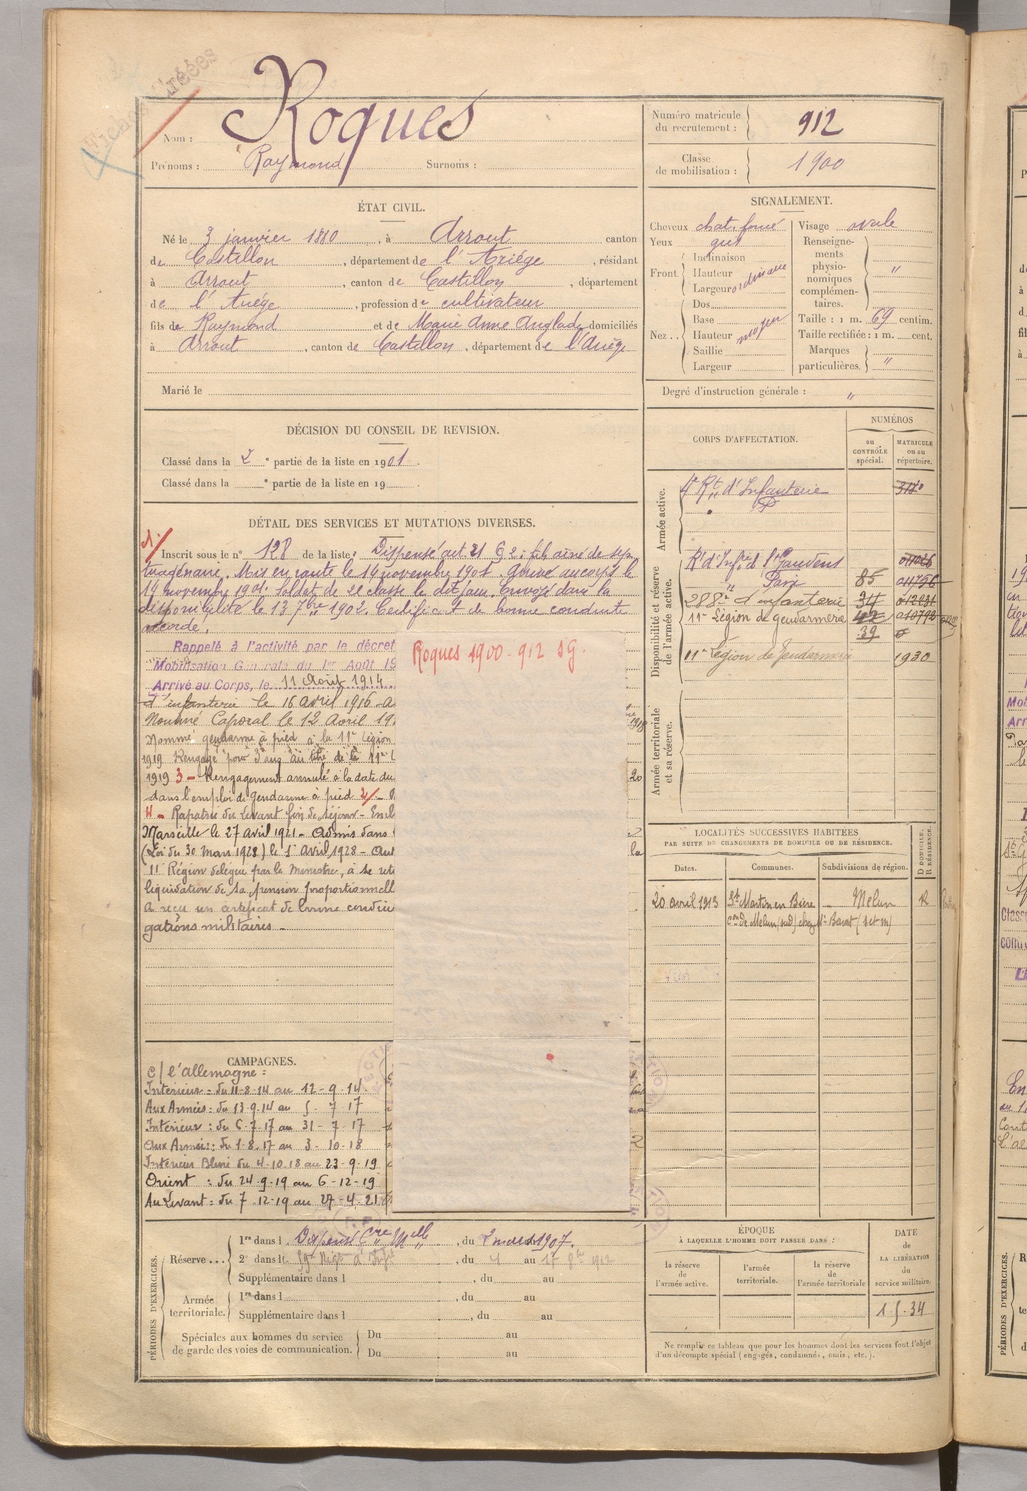 Fiches créées
Nom : Roques
Prénoms : Raymond Surnoms :
Numéro matricule du recrutement : 912
Classe de mobilisation : 1900
ÉTAT CIVIL.
Né le 3 janvier 1880, à Arrout canton
de Castillon, département de l'Ariége, résidant
à Arrout, canton de Castillon, département
de l'Ariége, profession de cultivateur
fils de Raymond et de Marie Anne Anglade domiciliés
à Arrout, canton de Castillon, département de l'Ariége
Marié le
SIGNALEMENT.
Cheveux chat. foncé
Yeux gris
Front Inclinaison
Hauteur ordinaire
Largeur
Nez Dos
Base
Hauteur moyen
Saillie
Largeur
Visage ovale
Renseignements physionomiques complémentaires. "
Taille : 1 m. 69 centim.
Taille rectifiée : 1 m. cent.
Marques particulières. "
Degré d'instruction générale : "
DÉCISION DU CONSEIL DE REVISION.
Classé dans la 2e partie de la liste en 1901.
Classé dans la e partie de la liste en 19
CORPS D'AFFECTATION.
NUMÉROS
au CONTRÔLE spécial.
MATRICULE ou au répertoire.
Armée active.
d'Infanterie
Disponibilité et réserve de l'armée active.
Rt d'Infrie de St Gaudens
" Paris 85
288e d'infanterie 34
11e Légion de gendarmerie
39
11e Légion de Gendarmerie 1930
Armée territoriale et sa réserve.
DÉTAIL DES SERVICES ET MUTATIONS DIVERSES.
Inscrit sous le n° 128 de la liste : Dispensé art. 21 § 2 : fils aîné de sep
tuagénaire. Mis en route le 14 novembre 1901. Arrivé au corps le
19 novembre 1901. Soldat de 2e classe le dit jour. Envoyé dans la
disponibilité le 13 7bre 1902. Certificat de bonne conduite
accordé.
Rappelé à l'activité par le décret
"Mobilisation Générale du 1er Août 19
Arrivé au Corps, le 11 Août 1914
d'infanterie le 16 avril 1916
Nommé Caporal le 12 Avril 19
Nommé gendarme à pied à la 11e Légion
1919 Rengagé pour 3 ans au titre de la 11e L
1919 3 - Rengagement annulé à la date du
dans l'emploi de gendarme à pied
4 - Rapatrié du Levant fin de séjour - Emb
Marseille le 27 avril 1921 - Admis dans
(Loi du 30 mars 1928) le 1er Avril 1928
11e Région délégué par le Ministre, à se reti
liquidation de sa pension proportionnell
A reçu un certificat de bonne conduite
gations militaires -
Roques 1900 - 912 SG.
LOCALITÉS SUCCESSIVES HABITÉES
PAR SUITE DE CHANGEMENTS DE DOMICILE OU DE RÉSIDENCE.
Dates. Communes. Subdivisions de région. D DOMICILE. R RÉSIDENCE.
20 avril 1913 St Martin en Bière - Melun R
CAMPAGNES.
c/ l'allemagne :
Intérieur : du 11-8-14 au 12-9-14
Aux Armées : du 13-9-14 au 5-7-17
Intérieur : du 6-7-17 au 31-7-17
Aux Armées : du 1-8-17 au 3-10-18
Intérieur Blessé du 4-10-18 au 23-9-19
Orient : du 24-9-19 au 6-12-19
Au Levant : du 7-12-19 au 27-4-21
PÉRIODES D'EXERCICES.
Réserve ... 1re dans l Dispensé , du 2 mars 1907
2e dans l , du au 17 8bre 1912
Supplémentaire dans l , du au
Armée territoriale. 1re dans l , du au
Supplémentaire dans l , du au
Spéciales aux hommes du service de garde des voies de communication. Du au
Du au
ÉPOQUE
À LAQUELLE L'HOMME DOIT PASSER DANS :
la réserve de l'armée active.
l'armée territoriale.
la réserve de l'armée territoriale
DATE de LA LIBÉRATION du service militaire.
Ne remplir ce tableau que pour les hommes dont les services font l'objet
d'un décompte spécial (engagés, condamnés, omis, etc.).